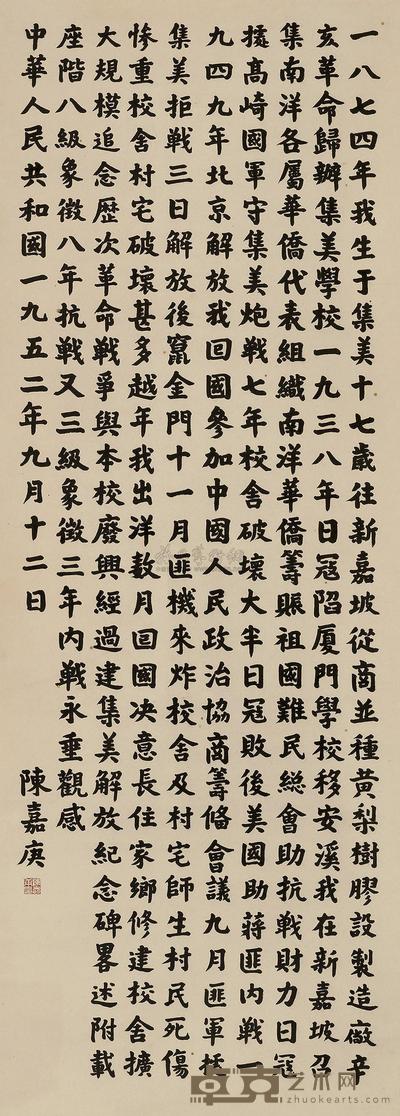 一八七四年我生于集美十七歲往新嘉坡從商並種黃梨樹膠設製造廠辛
亥革命歸辦集美學校一九三八年日冦陷厦門學校移安溪我在新嘉坡召
集南洋各屬華僑代表組織南洋華僑籌賑祖國難民総會助抗戰財力日冦
據高崎國軍守集美炮戰七年校舍破壞大半日冦敗後美國助蔣匪內戰一
九四九年北京解放我回國參加中國人民政治協商籌俻會議九月匪軍據
集美拒戰三日解放後竄金門十一月匪機來炸校舍及村宅師生村民死傷
慘重校舍村宅破壞甚多越年我出洋数月回國决意長住家鄉修建校舍擴
大規模追念歷次革命戰爭與本校廢興經過建集美解放紀念碑畧述附載
座階八級象徵八年抗戰又三級象徵三年內戰永垂觀感
中華人民共和國一九五二年九月十二日 陳嘉庚
卓克艺术网
zhuokearts.com